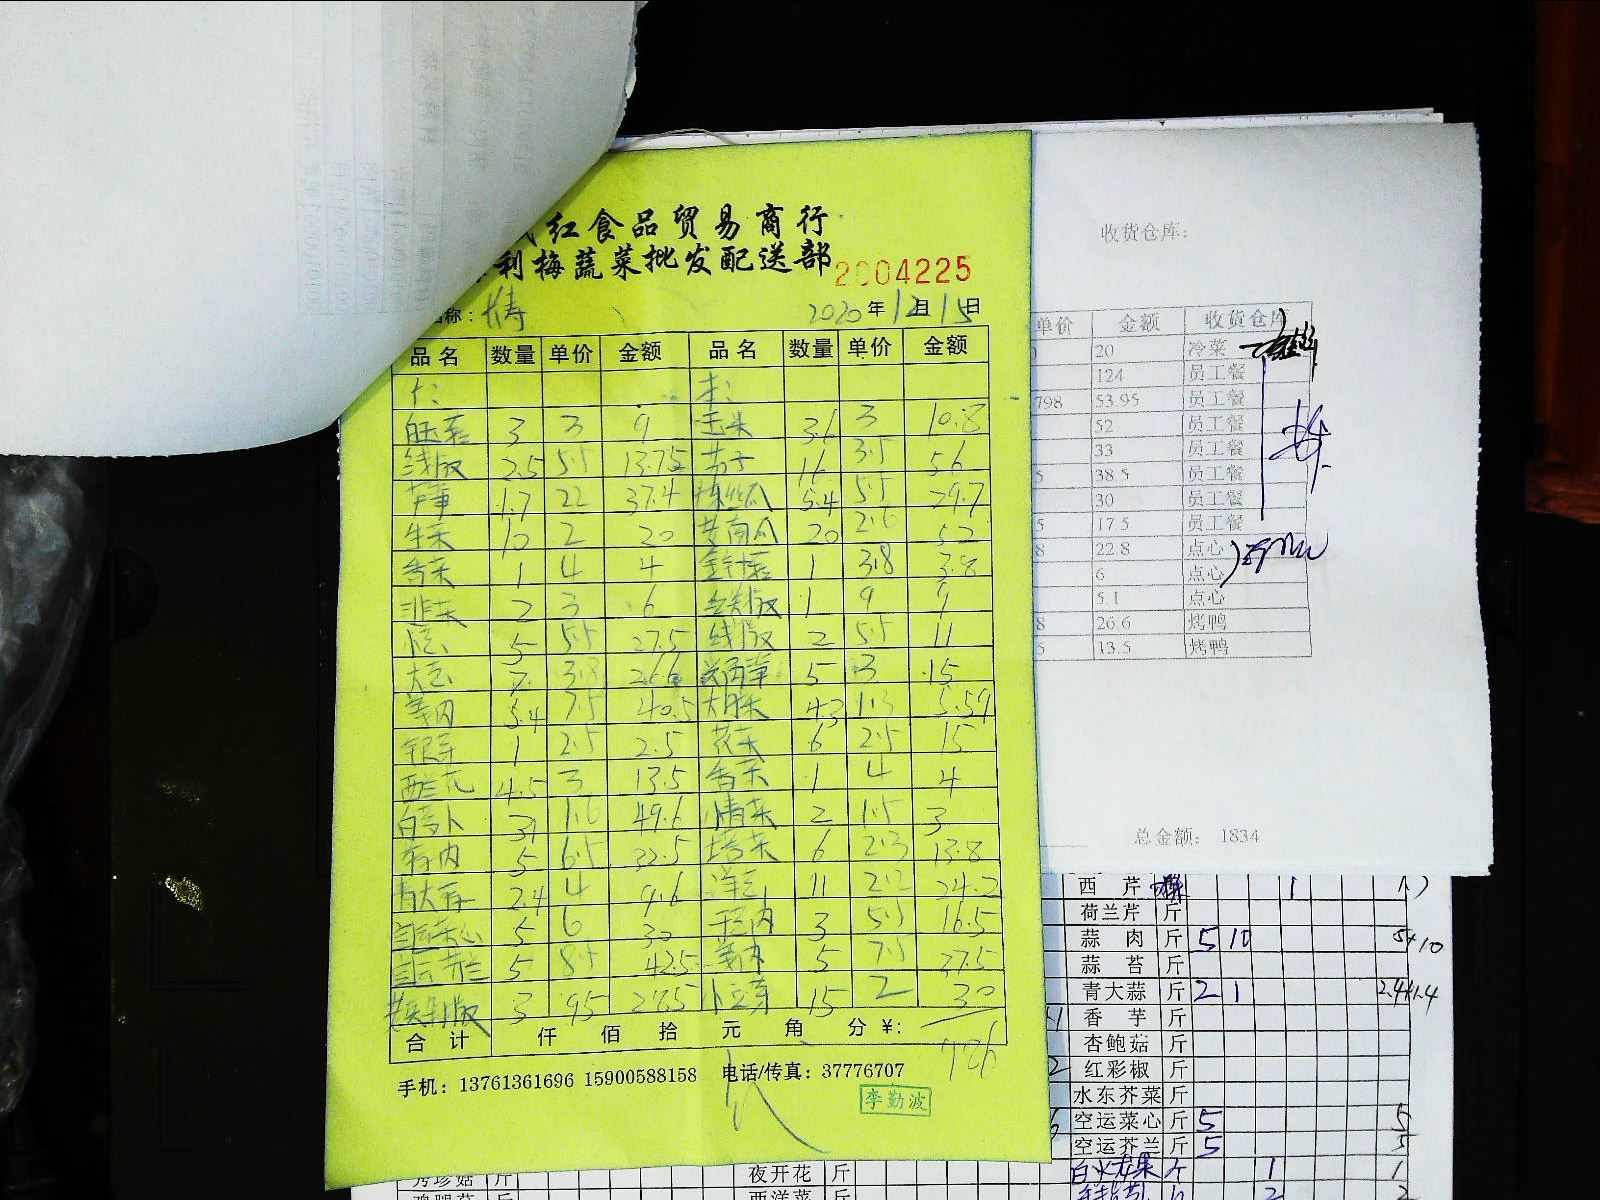 红食品贸易商行
利梅蔬菜批发配送部 2004225
称: 2020年12月15日
品名 数量 单价 金额 品名 数量 单价 金额
3 3 9 玉米 3.6 3 10.8
线椒 2.5 5.5 13.75 茄子 16 3.5 56
1.7 22 37.4 丝瓜 5.4 5.5 29.7
生菜 10 2 20 南瓜 20 2.6 52
香菜 1 4 4 1 3.8 3.8
韭菜 2 3 6 1 9 9
5 5.5 27.5 线椒 2 5.5 11
大葱 7 3.8 26.6 5 3 15
姜肉 5.4 7.5 40.5 4.3 1.3 5.59
银芽 1 2.5 2.5 花菜 6 2.5 15
西兰花 4.5 3 13.5 香菜 1 4 4
白萝卜 31 1.6 49.6 小青菜 2 1.5 3
蒜肉 5 6.5 32.5 塔菜 6 2.3 13.8
青大蒜 2.4 4 9.6 洋葱 11 2.2 24.2
空运菜心 5 6 30 3 5.5 16.5
空运芥兰 5 8.5 42.5 姜肉 5 7.5 37.5
3 9.5 28.5 15 2 30
合计 仟 佰 拾 元 角 分 ¥: 726
手机: 13761361696 15900588158 电话/传真: 37776707
李勤波
收货仓库:
单价 金额 收货仓库
20 冷菜
124 员工餐
798 53.95 员工餐
52 员工餐
33 员工餐
5 38.5 员工餐
30 员工餐
5 17.5 员工餐
8 22.8 点心
6 点心
5.1 点心
8 26.6 烤鸭
5 13.5 烤鸭
总金额: 1834
西芹 1
荷兰芹 斤
蒜肉 斤 5 10 5+10
蒜苔 斤
青大蒜 斤 2 1 2.4+1.4
香芋 斤
杏鲍菇 斤
红彩椒 斤
水东芥菜 斤
空运菜心 斤 5 5
空运芥兰 斤 5 5
白火龙果 斤 1 1
秀珍菇 斤 夜开花 斤
鸡腿菇 斤 西洋菜 斤 2 2